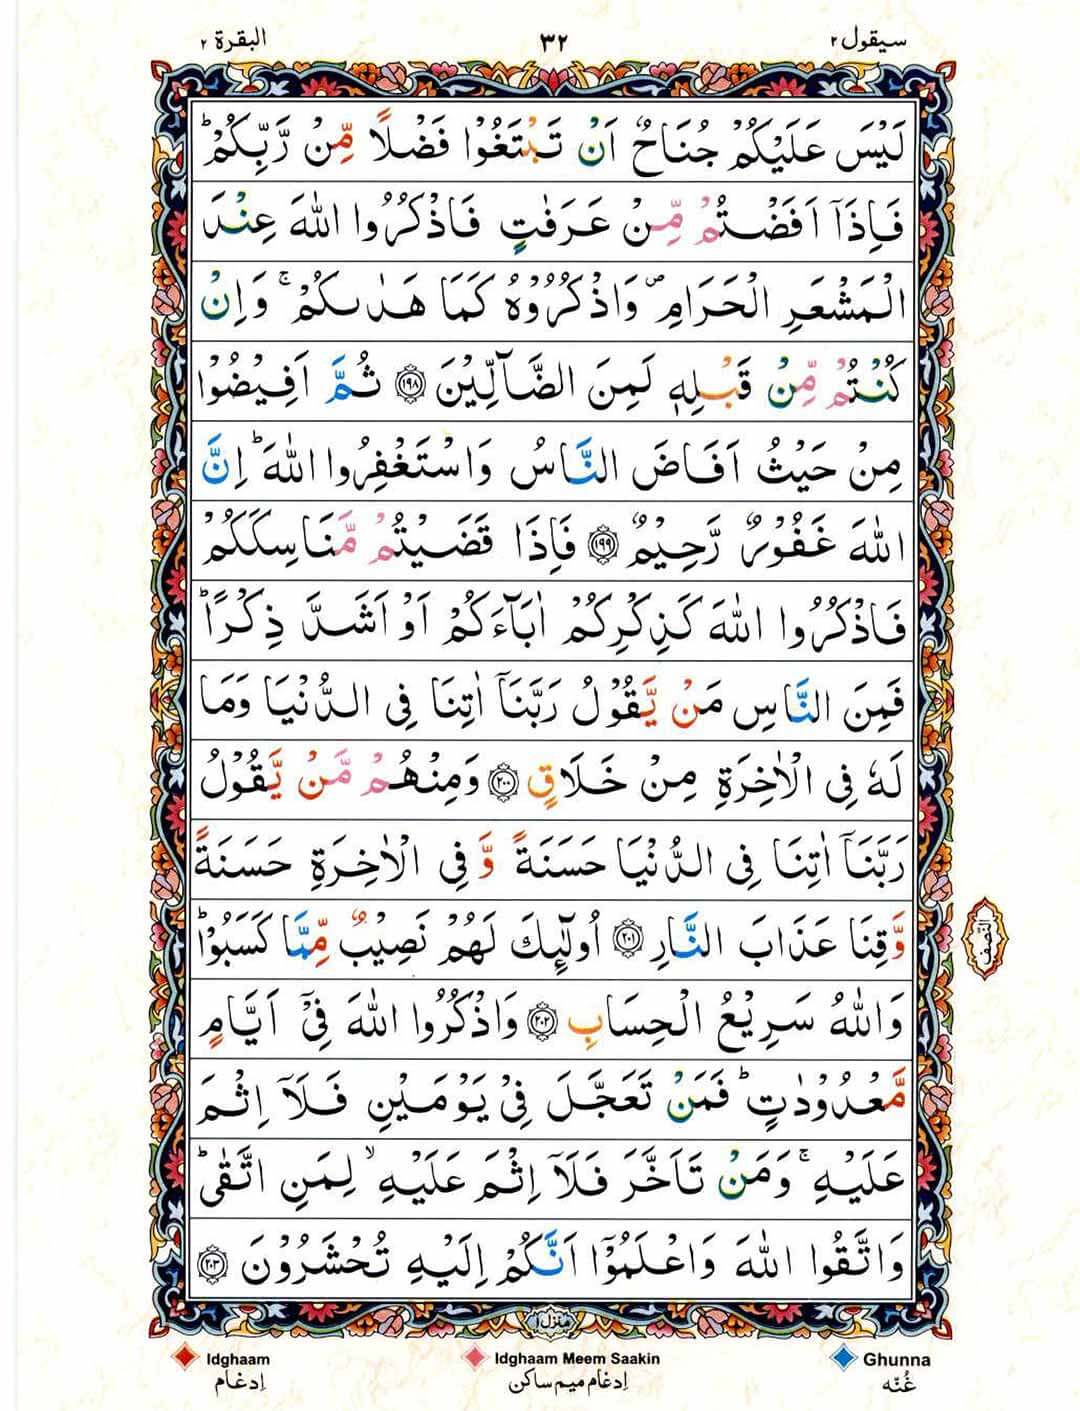 سيقول ٢
٣٢
البقرة ٢
لَيْسَ عَلَيْكُمْ جُنَاحٌ اَنْ تَبْتَغُوْا فَضْلًا مِّنْ رَّبِّكُمْ ؕ
فَاِذَاۤ اَفَضْتُمْ مِّنْ عَرَفٰتٍ فَاذْكُرُوا اللّٰهَ عِنْدَ
الْمَشْعَرِ الْحَرَامِ ۪ وَاذْكُرُوْهُ كَمَا هَدٰىكُمْ ۚ وَاِنْ
كُنْتُمْ مِّنْ قَبْلِهٖ لَمِنَ الضَّآلِّيْنَ ۝١٩٨ ثُمَّ اَفِيْضُوْا
مِنْ حَيْثُ اَفَاضَ النَّاسُ وَاسْتَغْفِرُوا اللّٰهَ ؕ اِنَّ
اللّٰهَ غَفُوْرٌ رَّحِيْمٌ ۝١٩٩ فَاِذَا قَضَيْتُمْ مَّنَاسِكَكُمْ
فَاذْكُرُوا اللّٰهَ كَذِكْرِكُمْ اٰبَآءَكُمْ اَوْ اَشَدَّ ذِكْرًا ؕ
فَمِنَ النَّاسِ مَنْ يَّقُوْلُ رَبَّنَاۤ اٰتِنَا فِى الدُّنْيَا وَمَا
لَهٗ فِى الْاٰخِرَةِ مِنْ خَلَاقٍ ۝٢٠٠ وَمِنْهُمْ مَّنْ يَّقُوْلُ
رَبَّنَاۤ اٰتِنَا فِى الدُّنْيَا حَسَنَةً وَّفِى الْاٰخِرَةِ حَسَنَةً
وَّقِنَا عَذَابَ النَّارِ ۝٢٠١ اُولٰٓئِكَ لَهُمْ نَصِيْبٌ مِّمَّا كَسَبُوْا ؕ
النصف
وَاللّٰهُ سَرِيْعُ الْحِسَابِ ۝٢٠٢ وَاذْكُرُوا اللّٰهَ فِىْۤ اَيَّامٍ
مَّعْدُوْدٰتٍ ؕ فَمَنْ تَعَجَّلَ فِىْ يَوْمَيْنِ فَلَاۤ اِثْمَ
عَلَيْهِ ۚ وَمَنْ تَاَخَّرَ فَلَاۤ اِثْمَ عَلَيْهِ ۙ لِمَنِ اتَّقٰى ؕ
وَاتَّقُوا اللّٰهَ وَاعْلَمُوْۤا اَنَّكُمْ اِلَيْهِ تُحْشَرُوْنَ ۝٢٠٣
منزل ١
Idghaam
Idghaam Meem Saakin
Ghunna
اِدغام
اِدغام میم ساکن
غُنّه